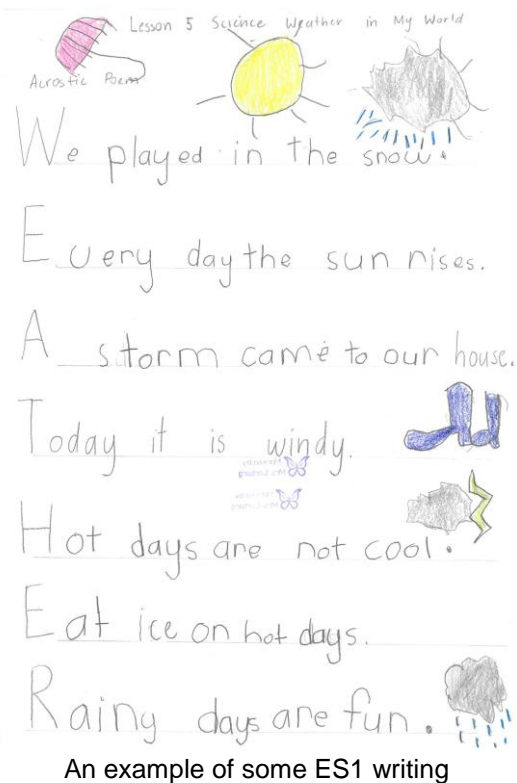 Lesson 5 Science Weather in My World
Acrostic Poem
We played in the snow.
Every day the sun rises.
A storm came to our house.
Today it is windy.
Hot days are not cool.
Eat ice on hot days.
Rainy days are fun.
An example of some ES1 writing